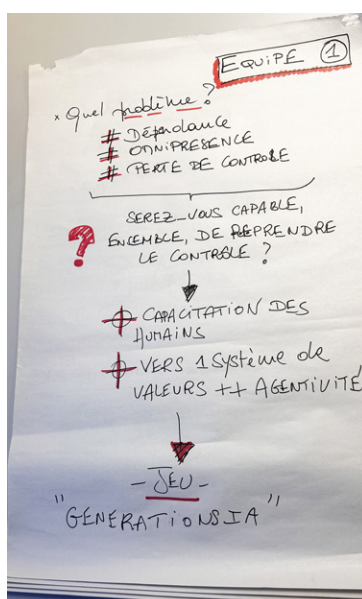 EQUIPE 1
* Quel problème ?
# Dépendance
# OMNIPRESENCE
# PERTE DE CONTROLE
SEREZ-VOUS CAPABLE,
? ENSEMBLE, DE REPRENDRE
LE CONTRÔLE ?
CAPACITATION DES
HUMAINS
VERS 1 Système de
VALEURS ++ AGENTIVITÉ
- JEU -
"GENERATIONS IA"